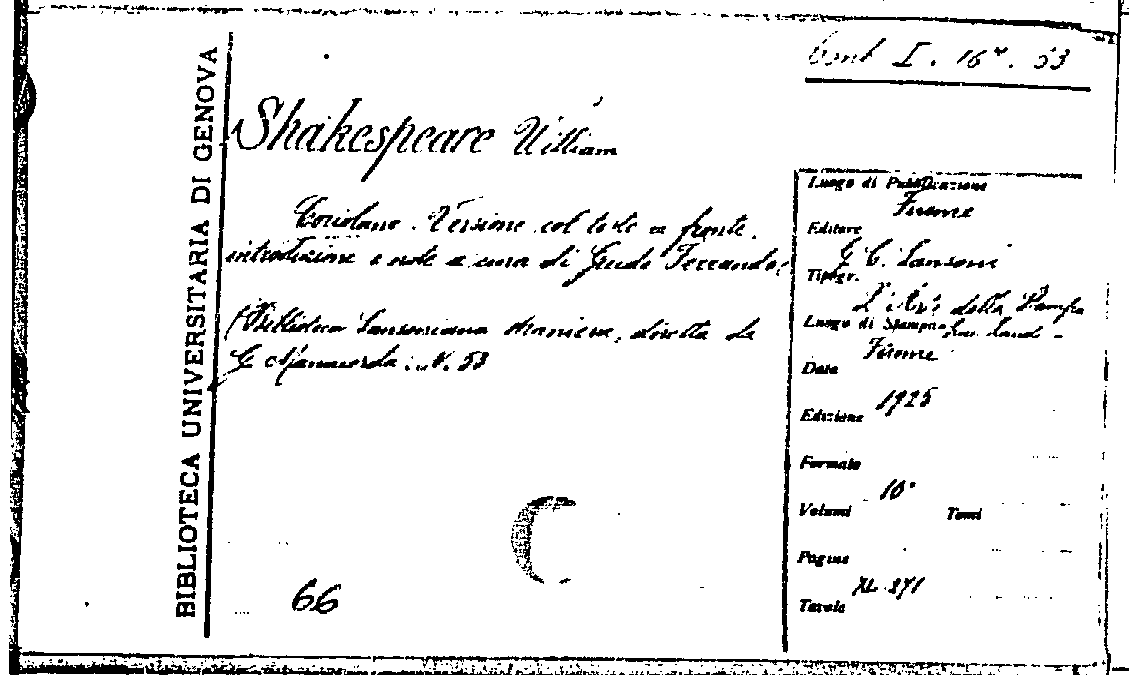 BIBLIOTECA UNIVERSITARIA DI GENOVA
I. 16°. 53
Shakespeare William
Coriolano. Versione col testo a fronte.
introduzione e note a cura di Guido Ferrando.
(Biblioteca Sansoniana straniera, diretta da
G. Manacorda. N. 53
66
Luogo di Pubblicazione
Firenze
Editore
G. C. Sansoni
Tipogr.
della Stampa
Luogo di Stampa
Firenze
Data
1925
Edizione
Formato
16°
Volumi Tomi
Pagine
XL. 371
Tavole